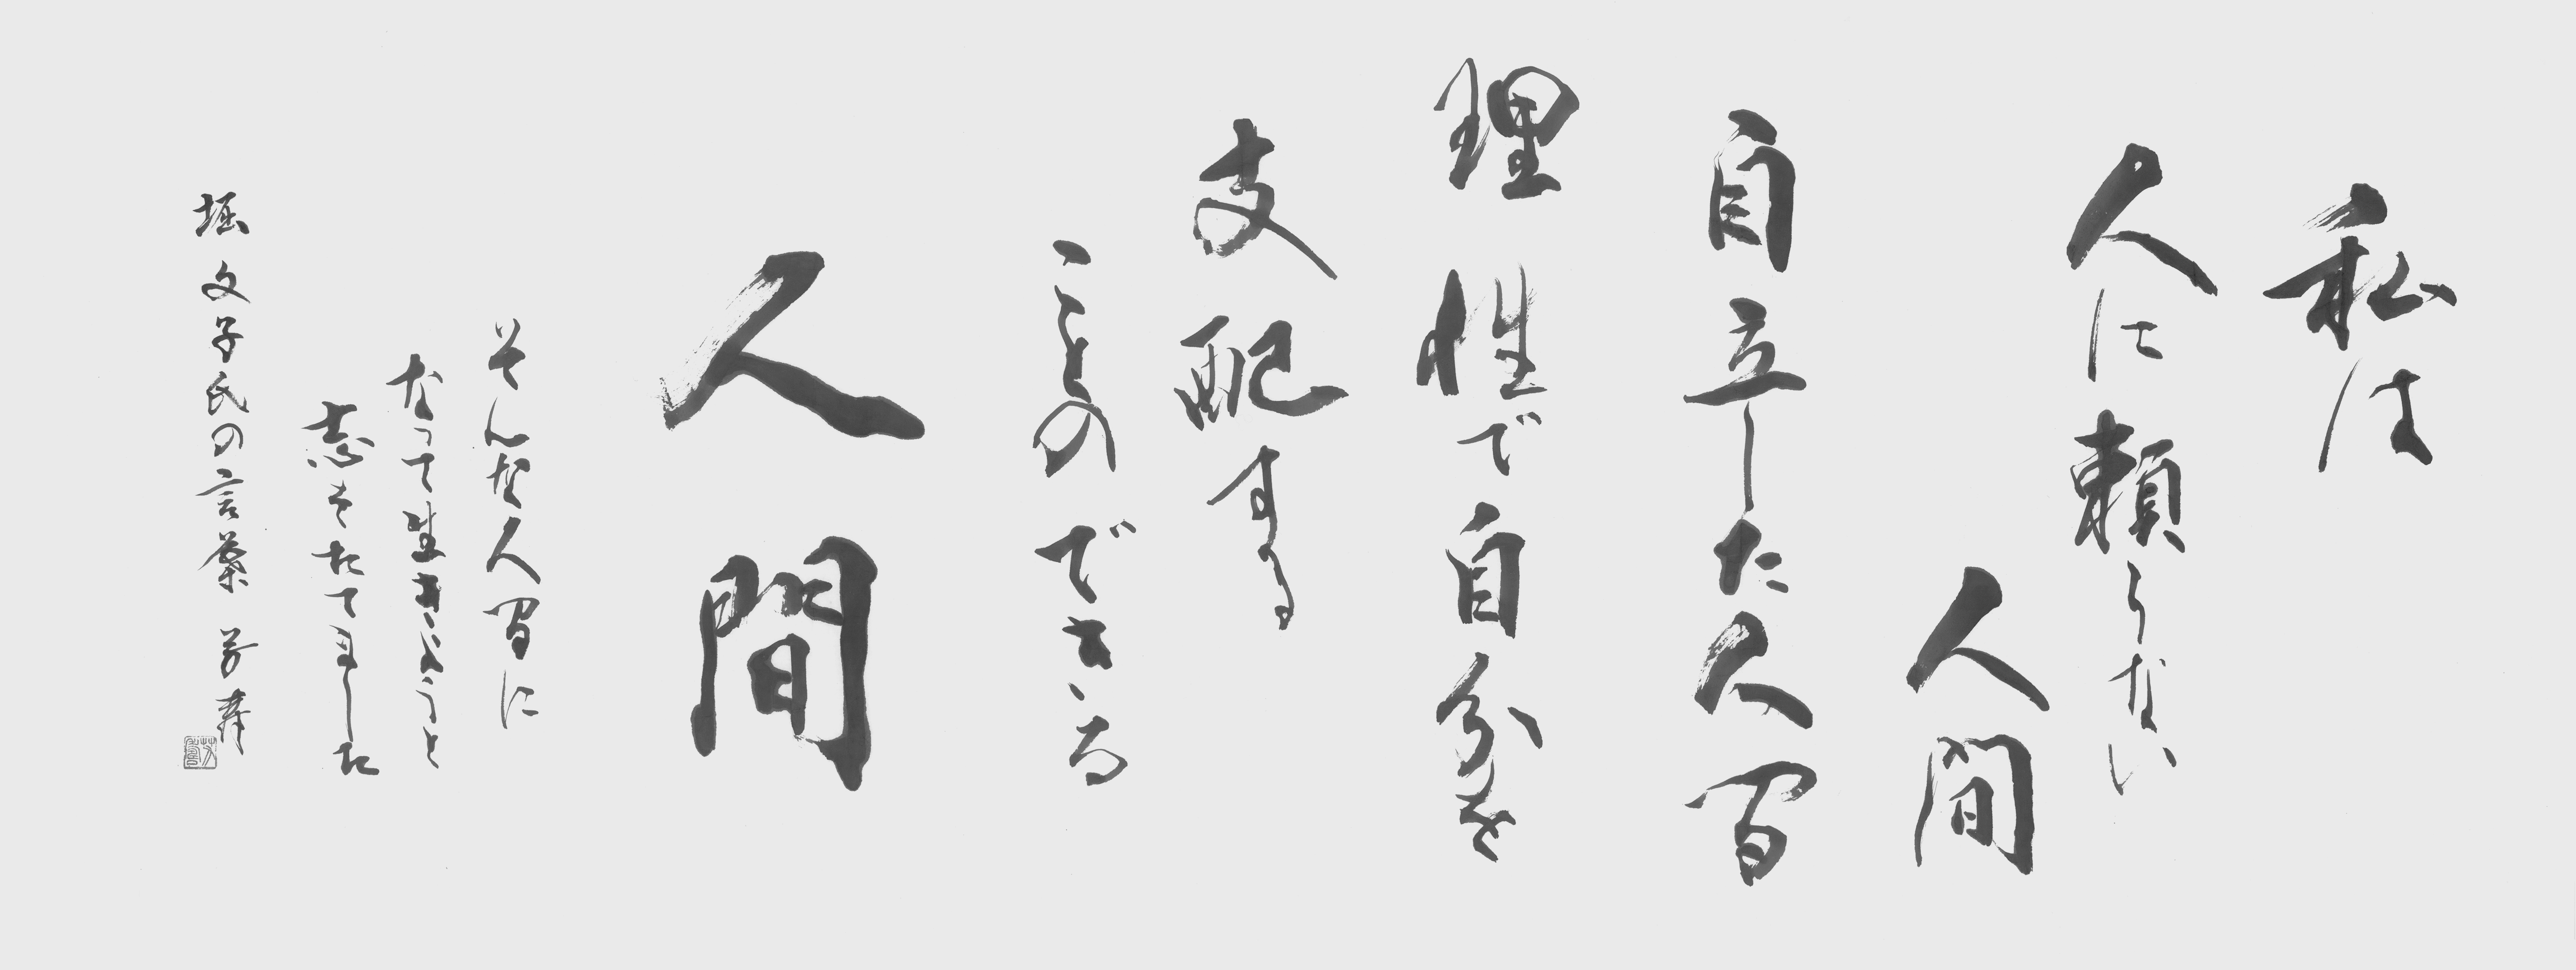 私は
人に頼らない
人間
自立した人間
理性で自分を
支配する
ことのできる
人間
そんな人間に
なって生きようと
志をたてました
堀文子氏の言葉 芳寿